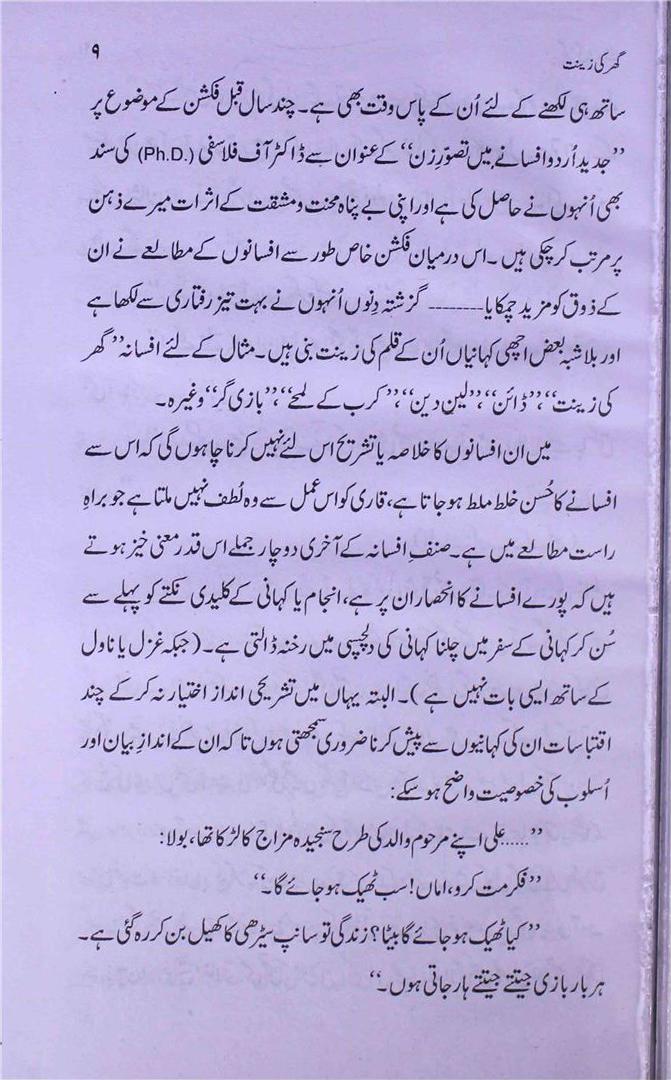 گھر کی زینت
۹
ساتھ ہی لکھنے کے لئے اُن کے پاس وقت بھی ہے۔ چند سال قبل فکشن کے موضوع پر
”جدید اُردو افسانے میں تصوّرِ زن“ کے عنوان سے ڈاکٹر آف فلاسفی (Ph.D.) کی سند
بھی اُنہوں نے حاصل کی ہے اور اپنی بے پناہ محنت و مشقت کے اثرات میرے ذہن
پر مرتب کر چکی ہیں ۔ اس درمیان فکشن خاص طور سے افسانوں کے مطالعے نے ان
کے ذوق کو مزید چمکایا -------- گزشتہ دِنوں اُنہوں نے بہت تیز رفتاری سے لکھا ہے
اور بلا شبہ بعض اچھی کہانیاں اُن کے قلم کی زینت بنی ہیں ۔ مثال کے لئے افسانہ ”گھر
کی زینت“، ”ڈائن“، ”لین دین“، ”کرب کے لمحے“، ”بازی گر“ وغیرہ ۔
میں ان افسانوں کا خلاصہ یا تشریح اس لئے نہیں کرنا چاہوں گی کہ اس سے
افسانے کا حُسن خلط ملط ہو جاتا ہے، قاری کو اس عمل سے وہ لُطف نہیں ملتا ہے جو براہِ
راست مطالعے میں ہے۔ صنفِ افسانہ کے آخری دو چار جملے اس قدر معنی خیز ہوتے
ہیں کہ پورے افسانے کا انحصار ان پر ہے، انجام یا کہانی کے کلیدی نکتے کو پہلے سے
سُن کر کہانی کے سفر میں چلنا کہانی کی دلچسپی میں رخنہ ڈالتی ہے۔ (جبکہ غزل یا ناول
کے ساتھ ایسی بات نہیں ہے )۔ البتہ یہاں میں تشریحی انداز اختیار نہ کر کے چند
اقتباسات ان کی کہانیوں سے پیش کرنا ضروری سمجھتی ہوں تا کہ ان کے اندازِ بیان اور
اُسلوب کی خصوصیت واضح ہو سکے:
”.....علی اپنے مرحوم والد کی طرح سنجیدہ مزاج کا لڑکا تھا، بولا:
”فکر مت کرو، اماں! سب ٹھیک ہو جائے گا۔“
”کیا ٹھیک ہو جائے گا بیٹا؟ زندگی تو سانپ سیڑھی کا کھیل بن کر رہ گئی ہے۔
ہر بار بازی جیتتے جیتتے ہار جاتی ہوں۔“